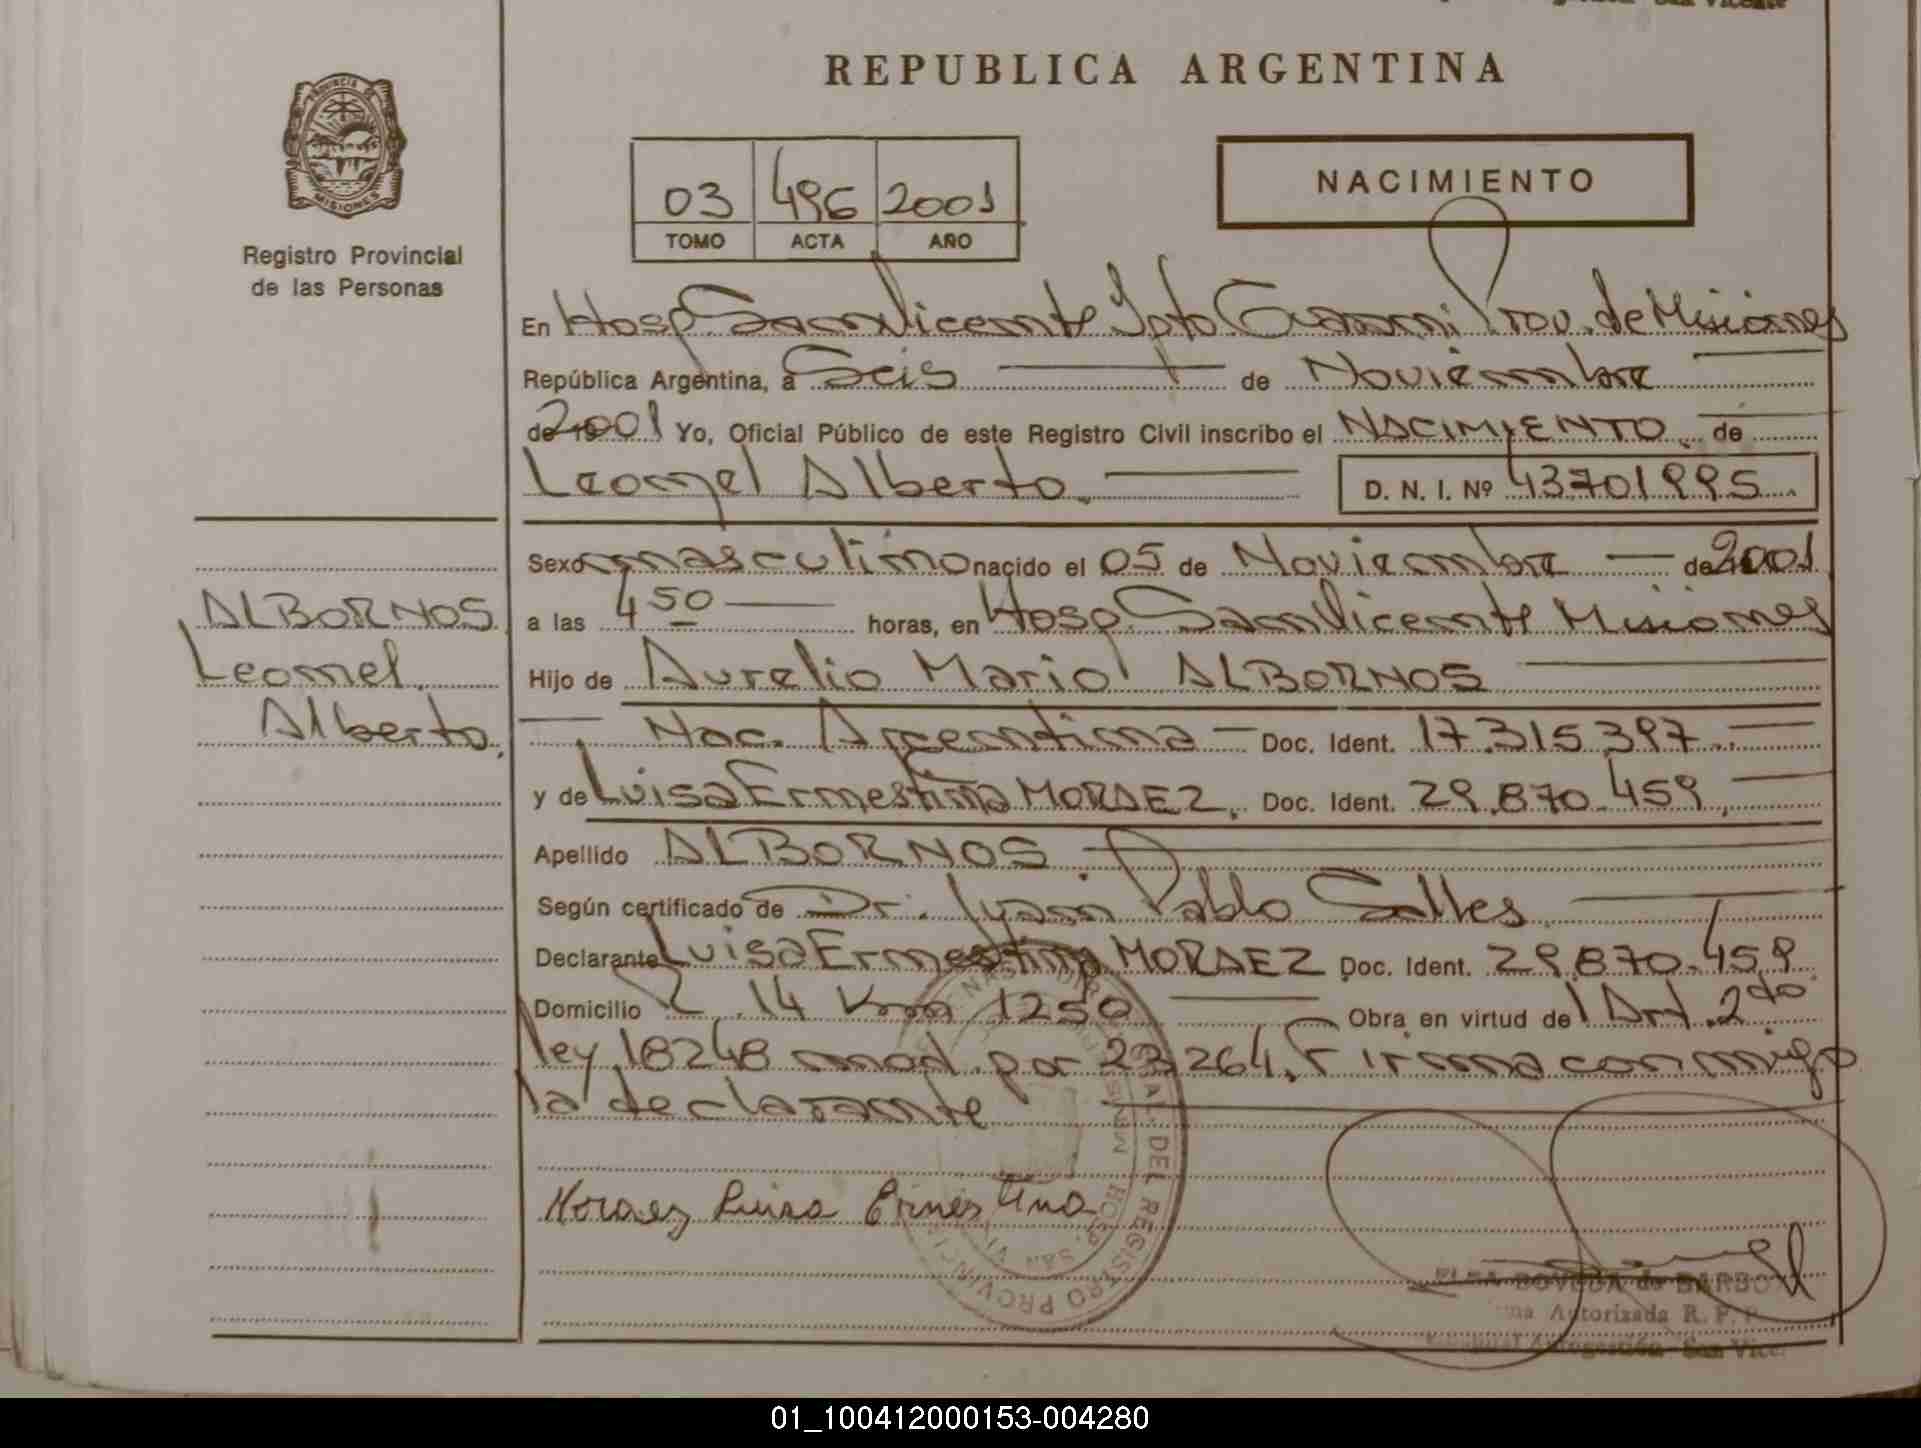 San Vicente
REPUBLICA ARGENTINA
PROVINCIA DE
MISIONES
Registro Provincial
de las Personas
03 496 2001
TOMO ACTA AÑO
NACIMIENTO
En Hosp. San Vicente Dpto Guarani Prov. de Misiones
República Argentina, a Seis de Noviembre
de 2001 Yo, Oficial Público de este Registro Civil inscribo el NACIMIENTO de
Leonel Alberto. D. N. I. Nº 43701995
Sexo masculino nacido el 05 de Noviembre de 2001
a las 4 50 horas, en Hosp. San Vicente Misiones
Hijo de Aurelio Mario ALBORNOS
Nac. Argentina - Doc. Ident. 17.315.397
y de Luisa Ernestina MORAEZ. Doc. Ident. 29.870.459
Apellido ALBORNOS
Según certificado de Dr. Juan Pablo Salles
Declarante Luisa Ernestina MORAEZ Doc. Ident. 29.870.459
Domicilio R. 14 Km 1250 Obra en virtud del Art. 2do
ley 18248 mod. por 23264. Firma conmigo
la declarante
ALBORNOS
Leonel
Alberto.
Moraez Luisa Ernestina
DEL REGISTRO PROVINCIAL
HOSP. SAN VI
ELSA de BARBO
Autorizada R. P. P.
San Vice
01_100412000153-004280